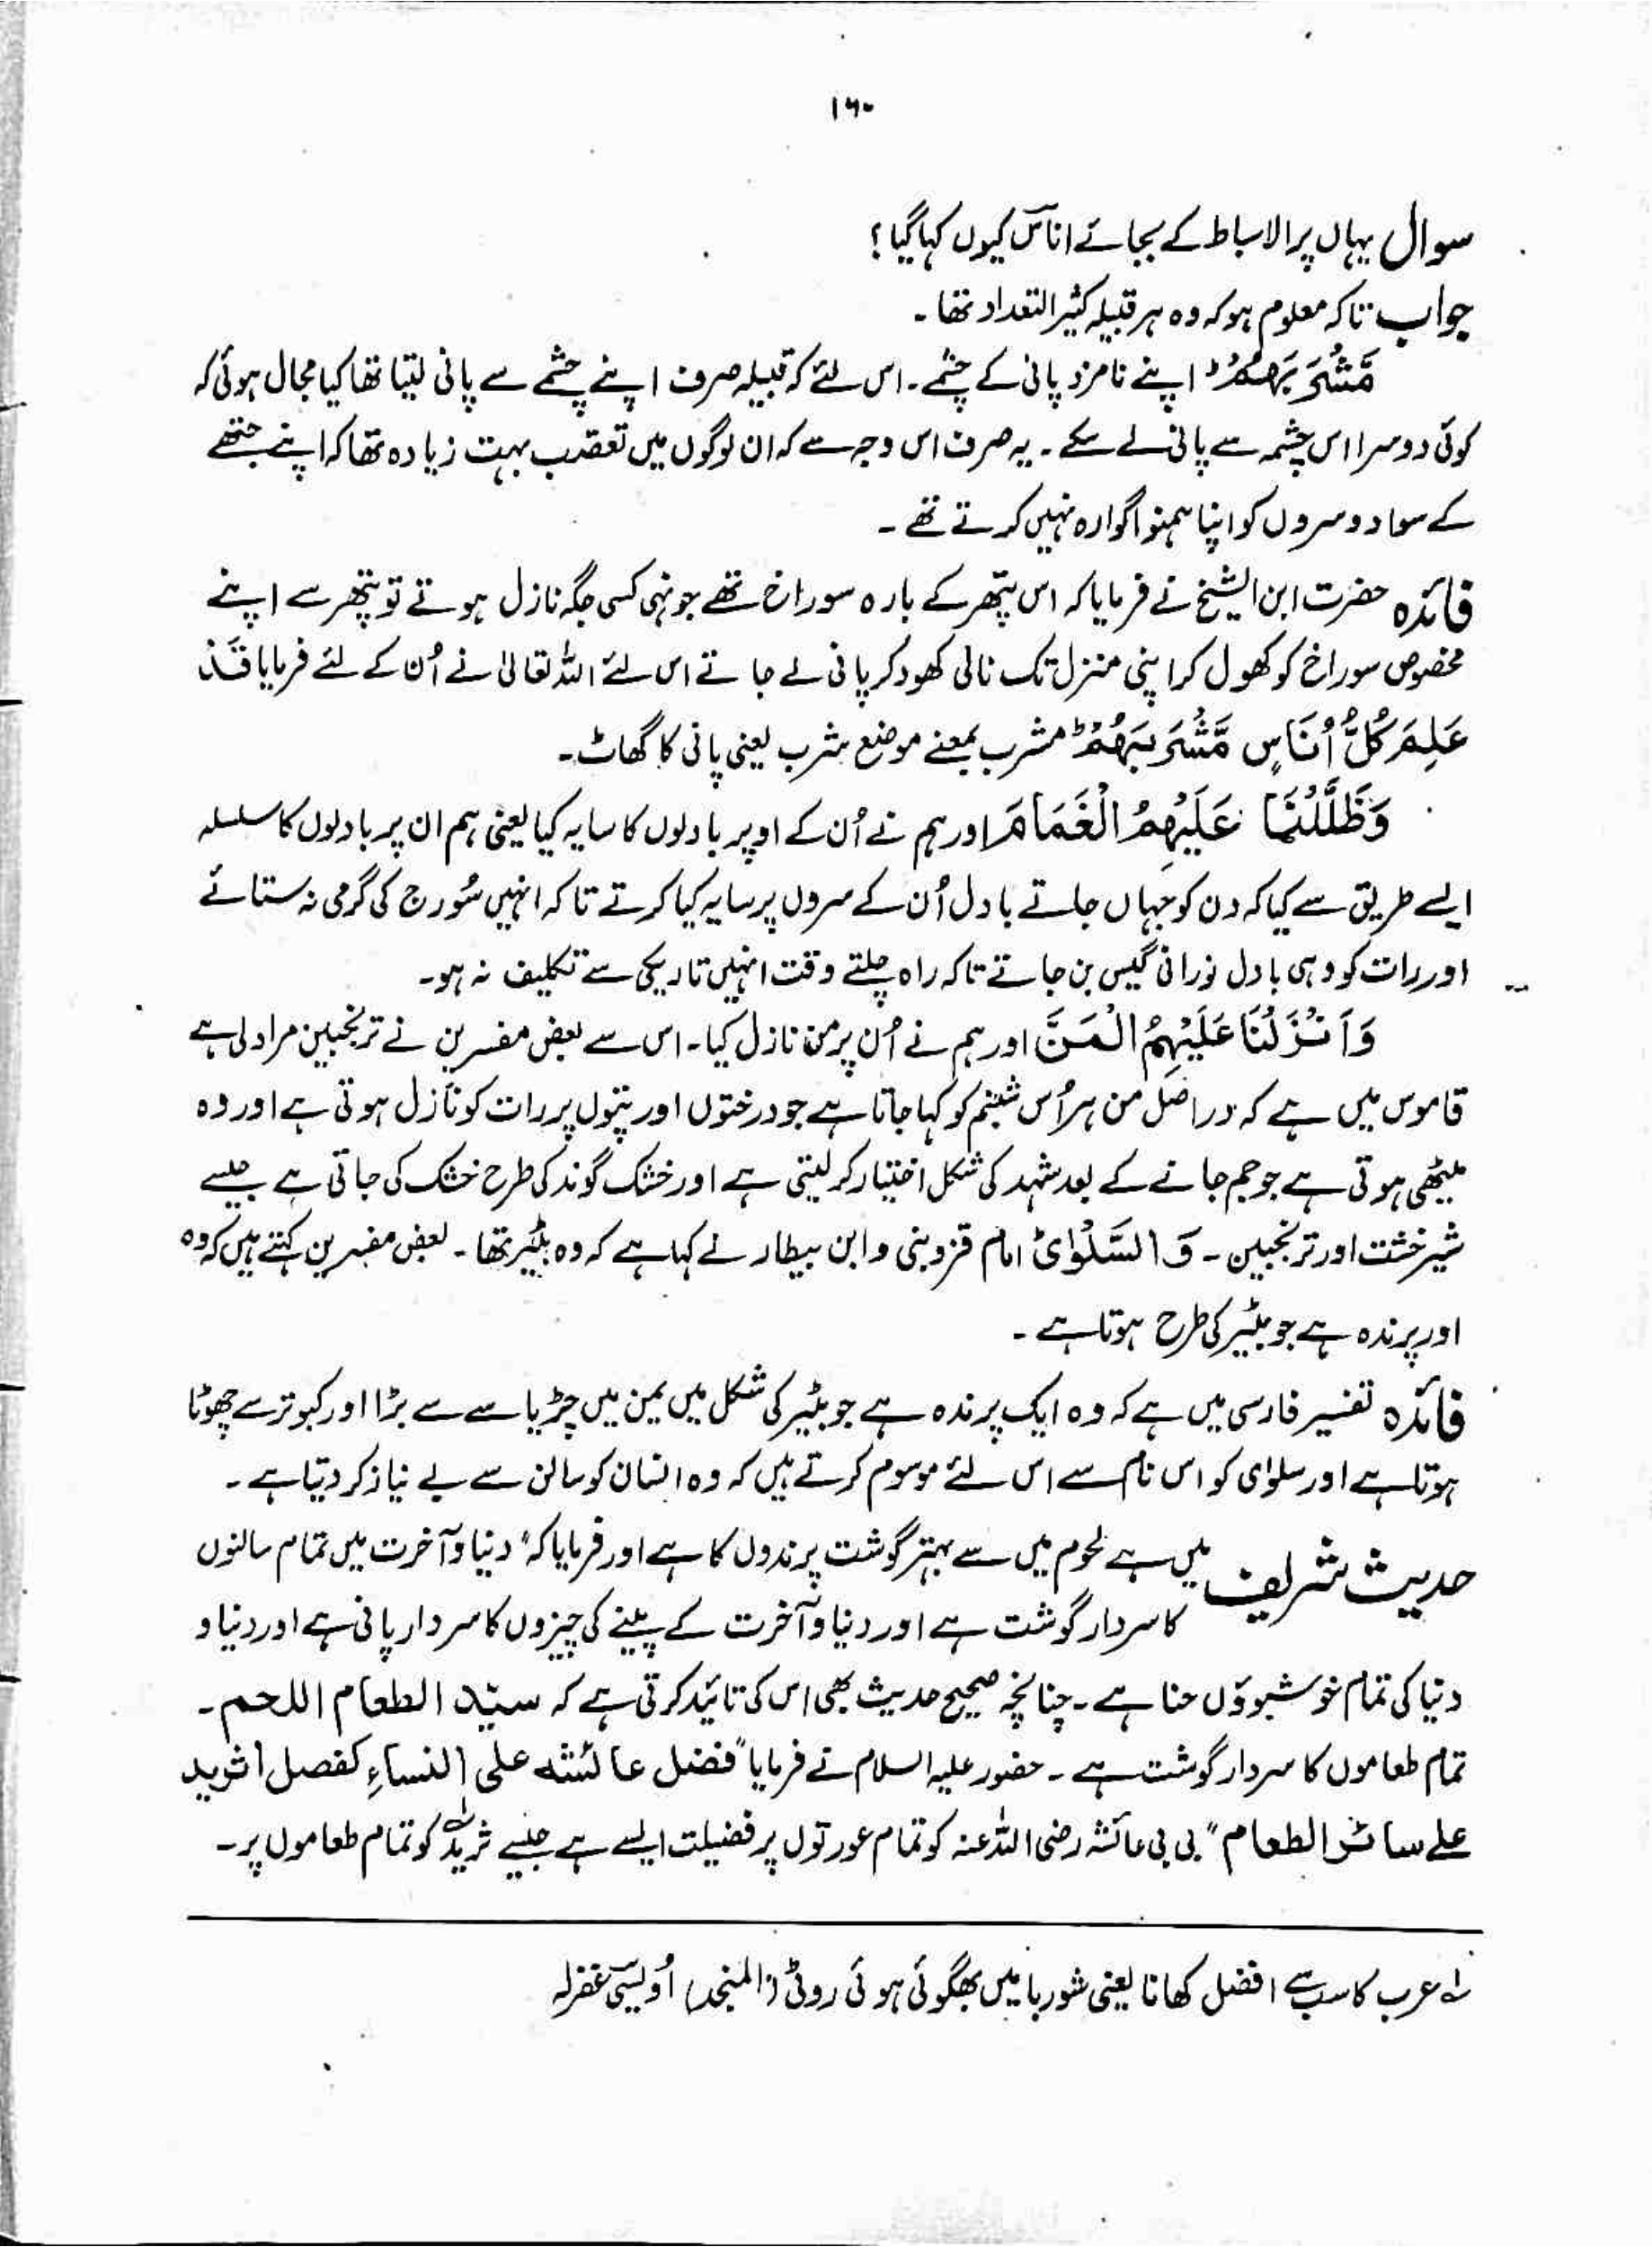 ۱۶۰
سوال یہاں پر الاسباط کے بجائے اناس کیوں کہا گیا؟
جواب تاکہ معلوم ہو کہ وہ ہر قبیلہ کثیر التعداد تھا۔
مَّشْرَبَهُمْ ط اپنے نامزد پانی کے چشمے۔ اس لئے کہ قبیلہ صرف اپنے چشمے سے پانی لیتا تھا کیا مجال ہوئی کہ
کوئی دوسرا اس چشمہ سے پانی لے سکے۔ یہ صرف اس وجہ سے کہ ان لوگوں میں تعصّب بہت زیادہ تھا کہ اپنے جتھے
کے سوا دوسروں کو اپنا ہمنوا گوارہ نہیں کرتے تھے۔
فائدہ حضرت ابن الشیخ نے فرمایا کہ اس پتھر کے بارہ سوراخ تھے جونہی کسی جگہ نازل ہوتے تو پتھر سے اپنے
مخصوص سوراخ کو کھول کر اپنی منزل تک نالی کھود کر پانی لے جاتے اس لئے اللہ تعالیٰ نے اُن کے لئے فرمایا قَدْ
عَلِمَ كُلُّ أُنَاسٍ مَّشْرَبَهُمْ ط مشرب بمعنے موضع شرب یعنی پانی کا گھاٹ۔
وَظَلَّلْنَا عَلَيْهِمُ الْغَمَامَ اور ہم نے اُن کے اوپر بادلوں کا سایہ کیا یعنی ہم ان پر بادلوں کا سلسلہ
ایسے طریق سے کیا کہ دن کو جہاں جاتے بادل اُن کے سروں پر سایہ کیا کرتے تاکہ انہیں سُورج کی گرمی نہ ستائے
اور رات کو وہی بادل نورانی گیس بن جاتے تاکہ راہ چلتے وقت انہیں تاریکی سے تکلیف نہ ہو۔
وَأَنْزَلْنَا عَلَيْهِمُ الْمَنَّ اور ہم نے اُن پر من نازل کیا۔ اس سے بعض مفسرین نے ترنجبین مراد لی ہے
قاموس میں ہے کہ دراصل من ہر اُس شبنم کو کہا جاتا ہے جو درختوں اور پتوں پر رات کو نازل ہوتی ہے اور وہ
میٹھی ہوتی ہے جو جم جانے کے بعد شہد کی شکل اختیار کر لیتی ہے اور خشک گوند کی طرح خشک کی جاتی ہے جیسے
شیر خشت اور ترنجبین۔ وَالسَّلْوٰىٰ امام قزوینی و ابن بیطار نے کہا ہے کہ وہ بٹیر تھا۔ بعض مفسرین کہتے ہیں کہ وہ
اور پرندہ ہے جو بٹیر کی طرح ہوتا ہے۔
فائدہ تفسیر فارسی میں ہے کہ وہ ایک پرندہ ہے جو بٹیر کی شکل میں یمن میں چڑیا سے سے بڑا اور کبوتر سے چھوٹا
ہوتا ہے اور سلوٰی کو اس نام سے اس لئے موسوم کرتے ہیں کہ وہ انسان کو سالن سے بے نیاز کر دیتا ہے۔
حدیث شریف میں ہے لحوم میں سے بہتر گوشت پرندوں کا ہے اور فرمایا کہ" دنیا و آخرت میں تمام سالنوں
کا سردار گوشت ہے اور دنیا و آخرت کے پینے کی چیزوں کا سردار پانی ہے اور دنیا و
دنیا کی تمام خوشبوؤں حنا ہے۔ چنانچہ صحیح حدیث بھی اس کی تائید کرتی ہے کہ سیّد الطعام اللحم۔
تمام طعاموں کا سردار گوشت ہے۔ حضور علیہ السلام نے فرمایا "فضل عائشه علی النساءِ کفصل اثرید
علے سائر الطعام" بی بی عائشہ رضی اللہ عنہ کو تمام عورتوں پر فضیلت ایسے ہے جیسے ثرید کو تمام طعاموں پر۔
لے عرب کا سب سے افضل کھانا یعنی شوربا میں بھگوئی ہوئی روٹی (المنجد) اُویسی غفرلہ